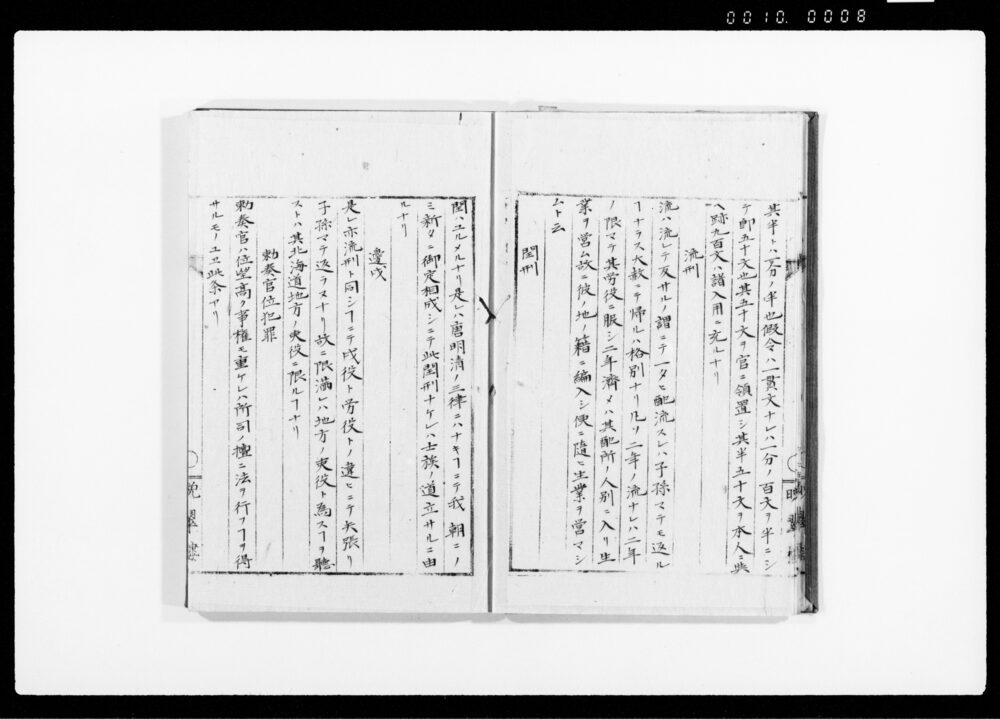 0010. 0008
其半トハ一分ノ半也假令ハ一貫文ナレハ一分ノ百文ヲ半ニシ
テ即五十文也其五十文ヲ官ニ領置シ其半五十文ヲ本人ニ與
ヘ跡九百文ハ諸入用ニ充ルナリ
流刑
流ハ流レテ反サルノ謂ニテ一タヒ配流スレハ子孫マテモ返ル
ヿナラス大赦ニテ帰ルハ格別ナリ凡ソ二年ノ流ナレハ二年
ノ限マテ其労役ニ服シ二年済メハ其配所ノ人別ニ入リ生
業ヲ営ム故ニ彼ノ地ノ籍ニ編入シ便ニ随ヒ生業ヲ営マシ
ムト云
閏刑
閏ハユルメルナリ是レハ唐明清ノ三律ニハナキヿニテ我 朝ニノ
ミ新タニ御定相成シニテ此閏刑ナケレハ士族ノ道立サルニ由
ルナリ
邊戍
是レ亦流刑ト同シヿニテ戍役ト労役トノ違ヒニテ矢張リ
子孫マテ返ラヌナリ故ニ限満レハ地方ノ吏役ト為スヿヲ聴
ストハ其北海道地方ノ吏役ニ限ルヿナリ
勅奏官位犯罪
勅奏官ハ位望高ク事権モ重ケレハ所司ノ擅ニ法ヲ行フヿヲ得
サルモノユヱ此条アリ
晩翠